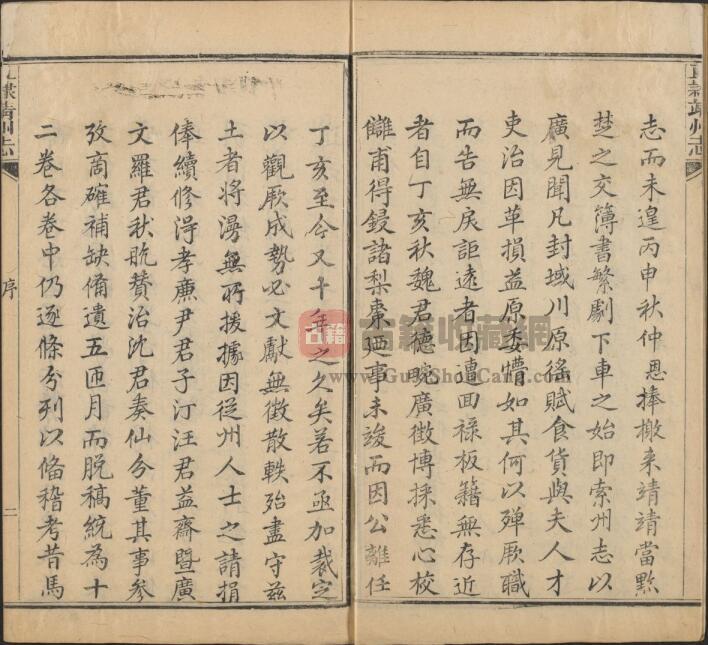 直隸靖州志
志而未遑丙申秋仲恩捧檄来靖靖當黔
楚之交簿書繁劇下車之始即索州志以
廣見聞凡封域川原徭賦食貨與夫人才
吏治因革損益原委懵如其何以殫厥職
而告無戾詎遠者因遭回祿板籍無存近
者自丁亥秋魏君德畹廣徵博採悉心校
讎甫得鋟諸梨棗廼事未竣而因公離任
丁亥至今又十年之久矣若不亟加裁定
以觀厥成勢必文獻無徵散軼殆盡守茲
土者將漫無所援據因從州人士之請捐
俸續修得孝廉尹君子汀汪君益齋暨廣
文羅君秋舫贊治沈君奏仙分董其事參
攷商確補缺備遺五匝月而脫稿統為十
二卷各卷中仍逐條分列以俻稽考昔馬
隸靖州志
序
二
古籍
古籍收藏網
www.GuJiShouCang.com